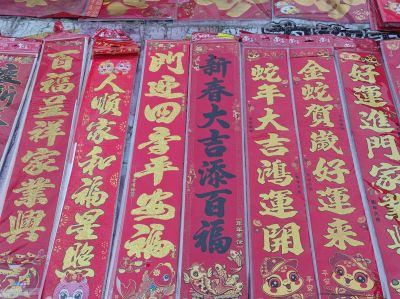 好運進門家
金蛇賀歲好運來
蛇年大吉鴻運開
新春大吉添百福
門迎四季平安福
人順家和福星照
百福呈祥家業興